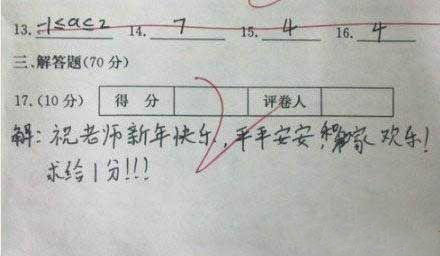 13. -1≤a≤2 14. 7 15. 4 16. 4
三、解答题(70分)
17.(10分) 得 分 评卷人
解：祝老师新年快乐，平平安安！阖家欢乐！
求给1分!!!